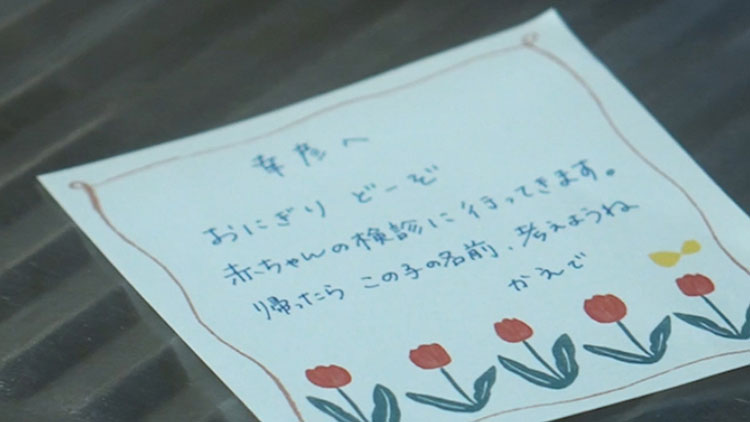 幸彦へ
おにぎり どーぞ
赤ちゃんの検診に行ってきます。
帰ったら この子の名前、考えようね
かえで